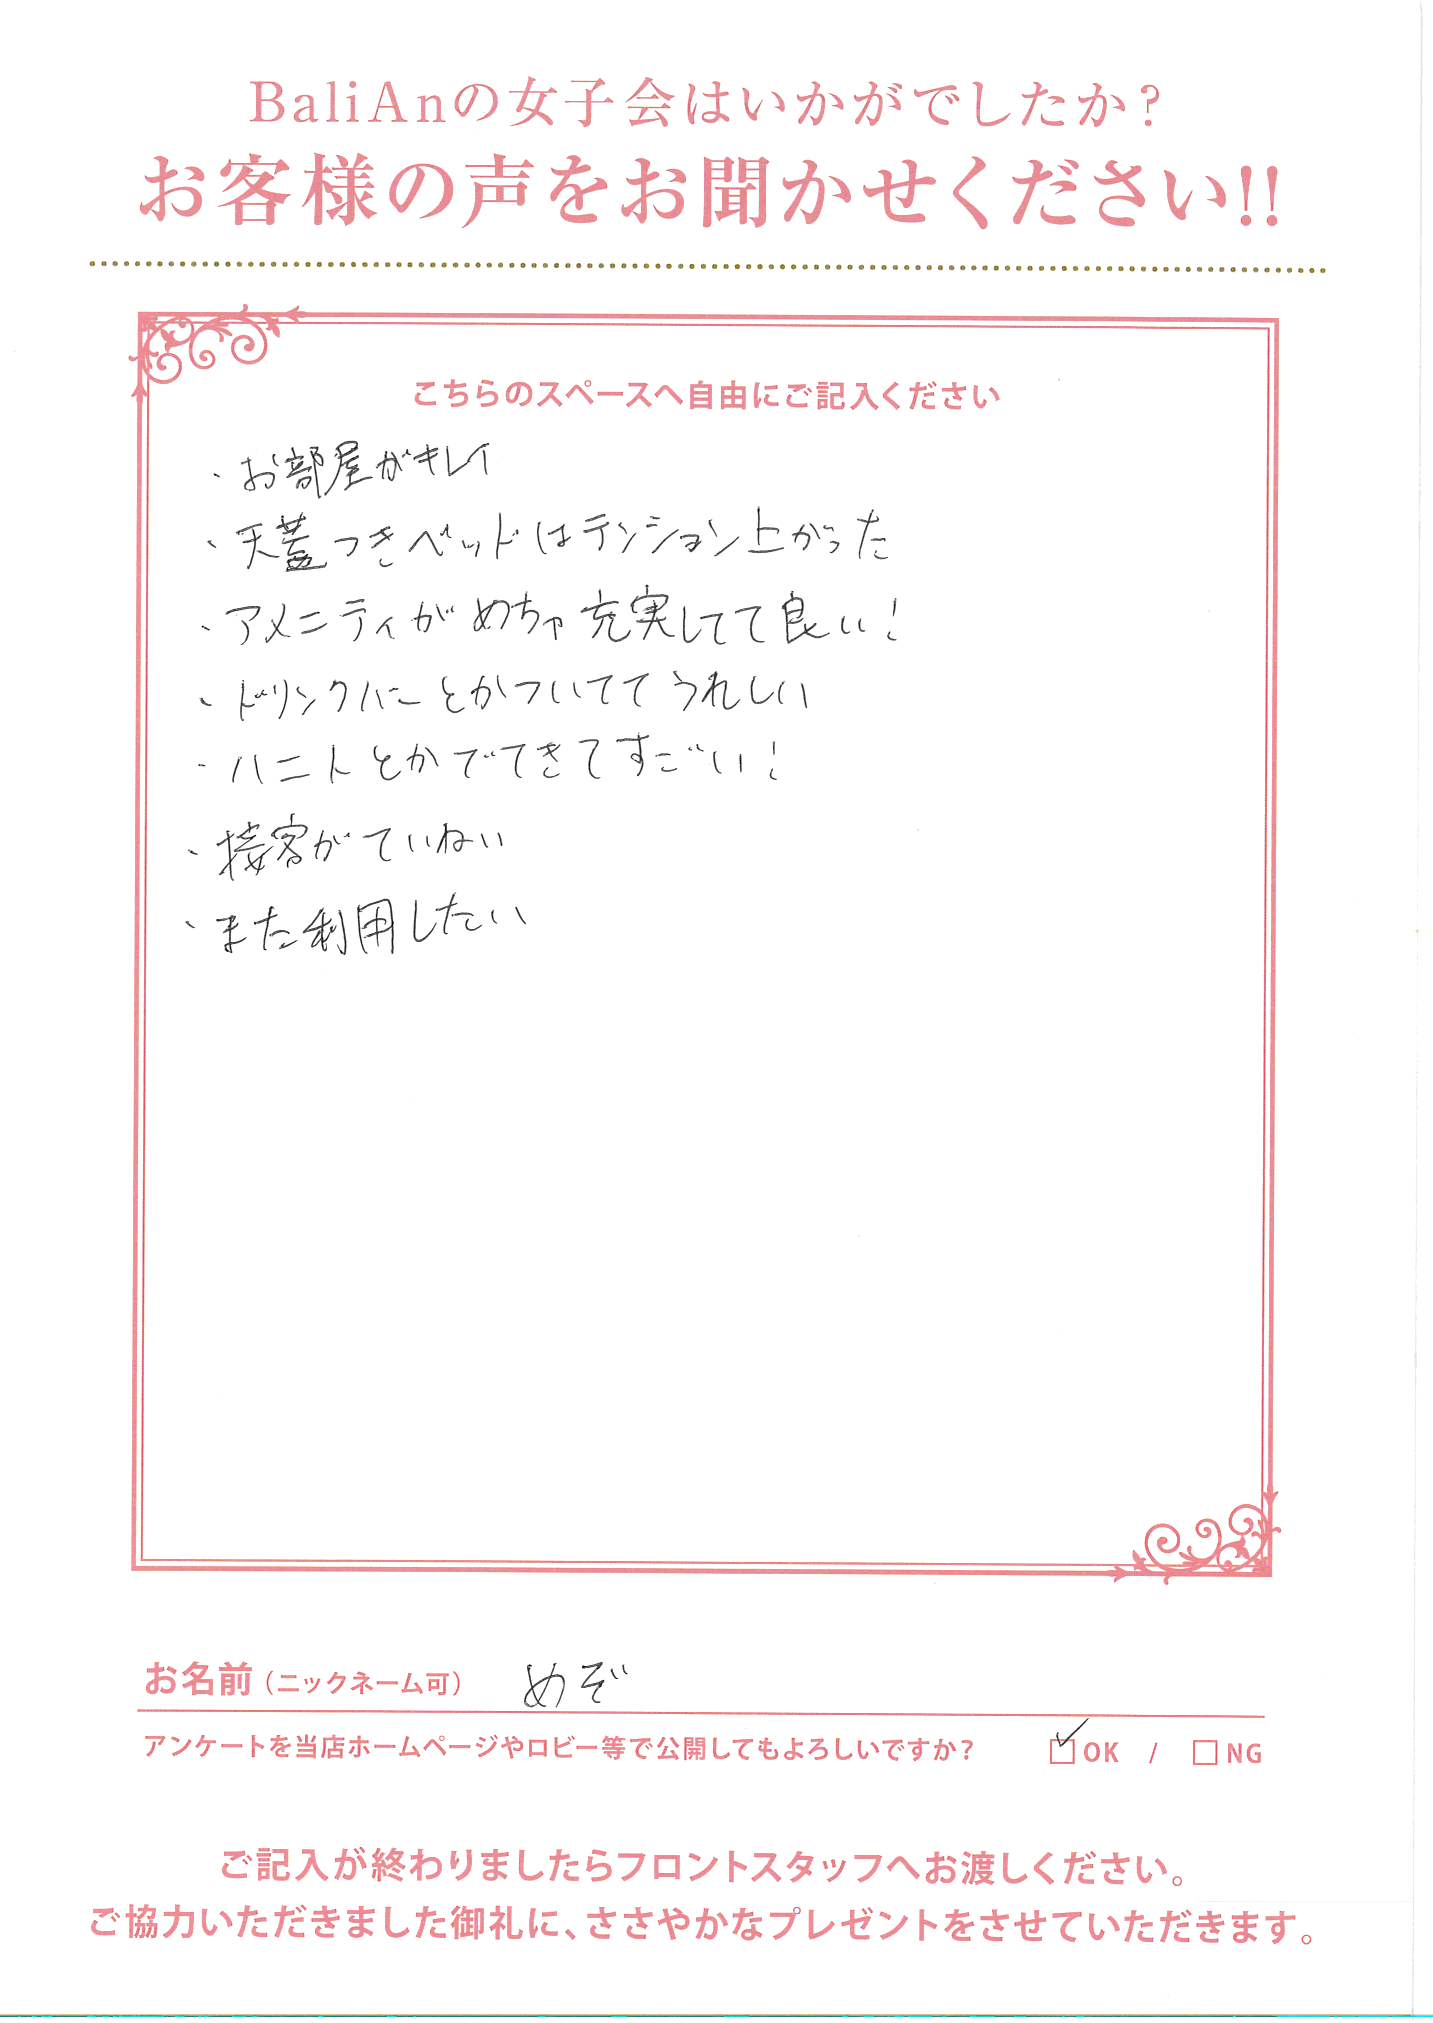 BaliAnの女子会はいかがでしたか?
お客様の声をお聞かせください!!
こちらのスペースへ自由にご記入ください
・お部屋がキレイ
・天蓋つきベッドはテンション上がった
・アメニティがめちゃ充実してて良い!
・ドリンクバーとかついててうれしい
・ハニトとかでてきてすごい!
・接客がていねい
・また利用したい
お名前(ニックネーム可) めぞ
アンケートを当店ホームページやロビー等で公開してもよろしいですか? OK / NG
ご記入が終わりましたらフロントスタッフへお渡しください。
ご協力いただきました御礼に、ささやかなプレゼントをさせていただきます。